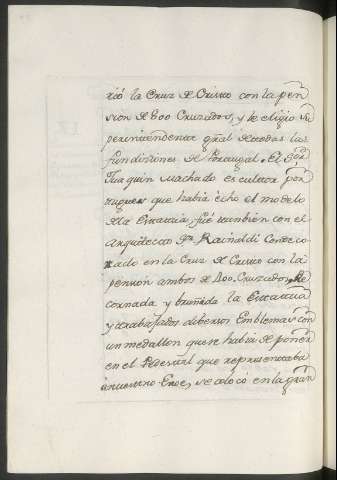 rió la Cruz de Cristo con la pen
sion de 600 Cruzados, y le eligio su
perintendente gral de todas las
fundiziones de Portugal. El Sor
Juaquin Machado escultor por
tugues que habia écho el modelo
de la Estatua, fué tambien con el
arquitecto Rainaldi Condeco
rado en la Cruz de Cristo con la
pension ambos de 400 Cruzados. Re
tornada y bruñida la Estatua
y trabajados dibersos Emblemas con
un medallon que se habia de poner
en el Pedestal que representaba
à nuestro Eroe, se colocó en la gran